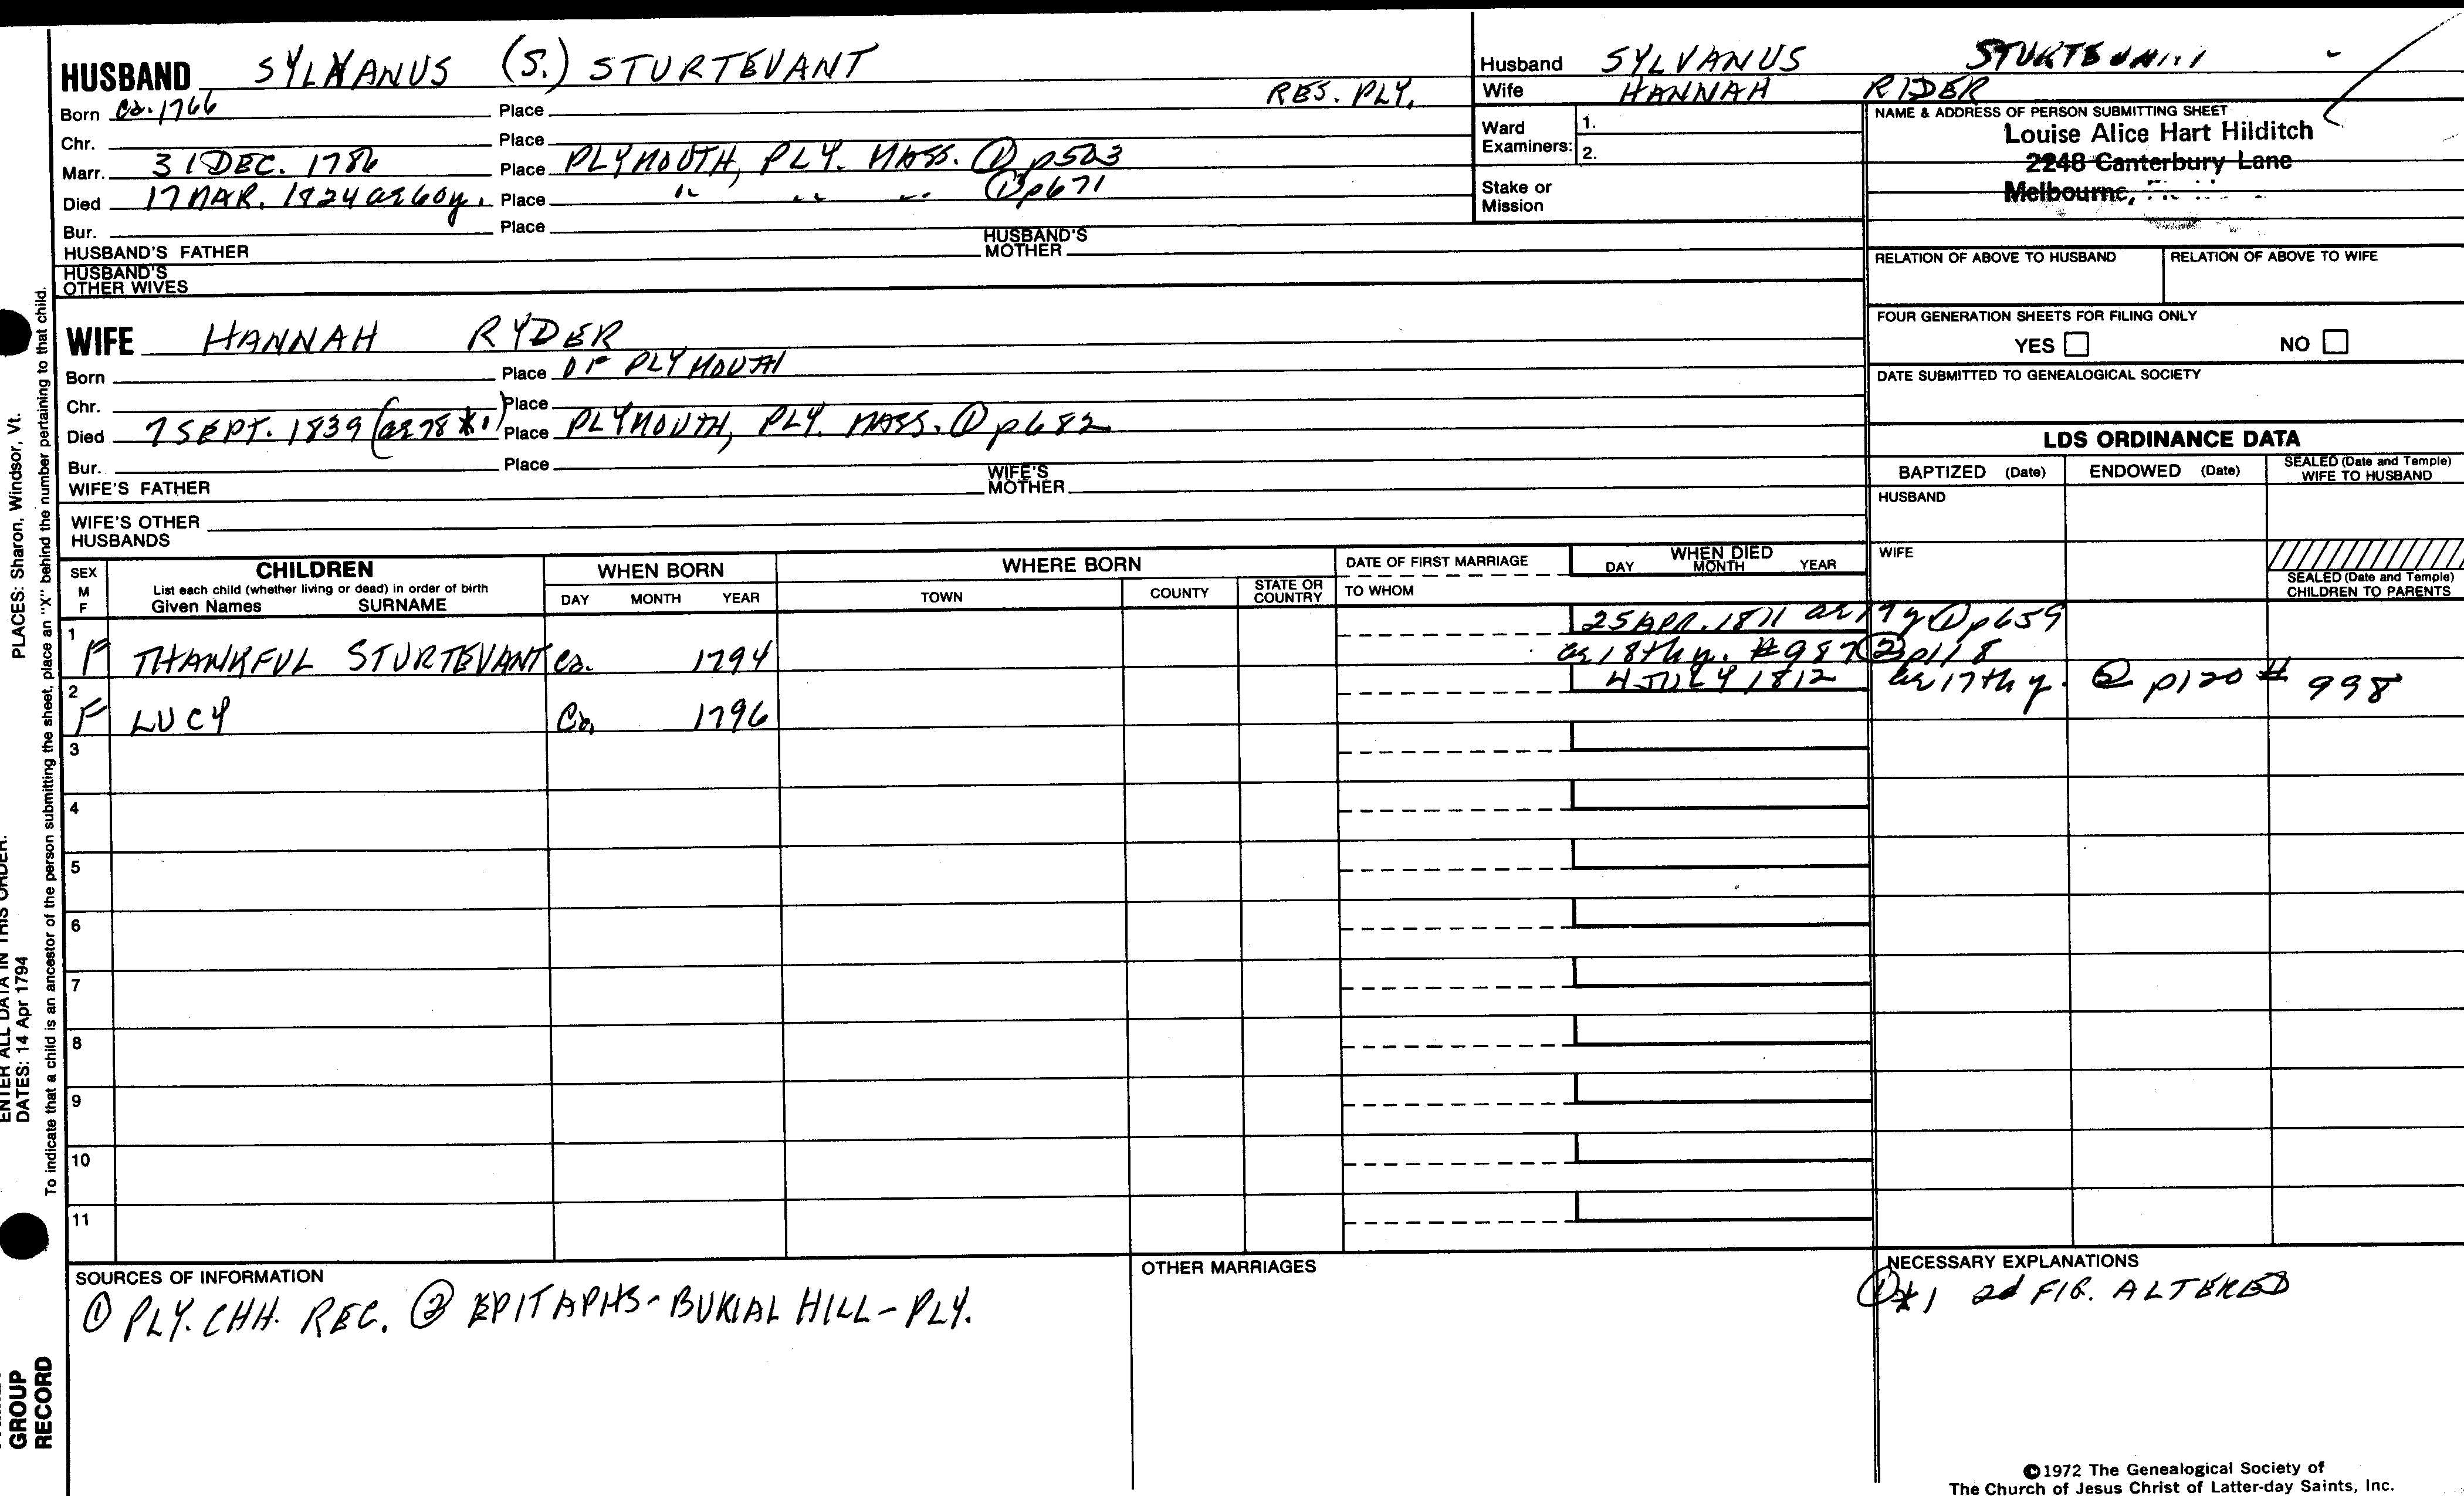 HUSBAND SYLVANUS (S.) STURTEVANT
RES. PLY.
Born ca. 1766 Place
Chr. Place
Marr. 31 DEC. 1786 Place PLYMOUTH, PLY. MASS. ① p503
Died 17 MAR. 1824 ae 60 y. Place " " " ① p671
Bur. Place
HUSBAND'S FATHER HUSBAND'S MOTHER
HUSBAND'S OTHER WIVES
Husband SYLVANUS
Wife HANNAH RIDER
Ward Examiners: 1.
2.
Stake or Mission
NAME & ADDRESS OF PERSON SUBMITTING SHEET
Louise Alice Hart Hilditch
2248 Canterbury Lane
Melbourne,
RELATION OF ABOVE TO HUSBAND RELATION OF ABOVE TO WIFE
FOUR GENERATION SHEETS FOR FILING ONLY
YES NO
DATE SUBMITTED TO GENEALOGICAL SOCIETY
WIFE HANNAH RYDER
Born Place OF PLYMOUTH
Chr. Place
Died 7 SEPT. 1839 (ae 78 *1) Place PLYMOUTH, PLY. MASS. ① p682
Bur. Place
WIFE'S FATHER WIFE'S MOTHER
WIFE'S OTHER HUSBANDS
LDS ORDINANCE DATA
BAPTIZED (Date) ENDOWED (Date) SEALED (Date and Temple) WIFE TO HUSBAND
HUSBAND
WIFE
SEALED (Date and Temple) CHILDREN TO PARENTS
SEX M F
CHILDREN
List each child (whether living or dead) in order of birth
Given Names SURNAME
WHEN BORN
DAY MONTH YEAR
WHERE BORN
TOWN COUNTY STATE OR COUNTRY
DATE OF FIRST MARRIAGE
TO WHOM
WHEN DIED
DAY MONTH YEAR
1 25 APR. 1811 ae 19 y ① p659
F THANKFUL STURTEVANT ca. 1794 ae 18th y. #987 ② p118
2 4 JULY 1812 ae 17th y. ② p120 # 998
F LUCY Ca. 1796
3
4
5
6
7
8
9
10
11
SOURCES OF INFORMATION
① PLY. CHH. REC. ② EPITAPHS - BURIAL HILL - PLY.
OTHER MARRIAGES
NECESSARY EXPLANATIONS
① *1 2d FIG. ALTERED
©1972 The Genealogical Society of
The Church of Jesus Christ of Latter-day Saints, Inc.
PLACES: Sharon, Windsor, Vt.
ENTER ALL DATA IN THIS ORDER:
DATES: 14 Apr 1794
To indicate that a child is an ancestor of the person submitting the sheet, place an "X" behind the number pertaining to that child.
GROUP
RECORD